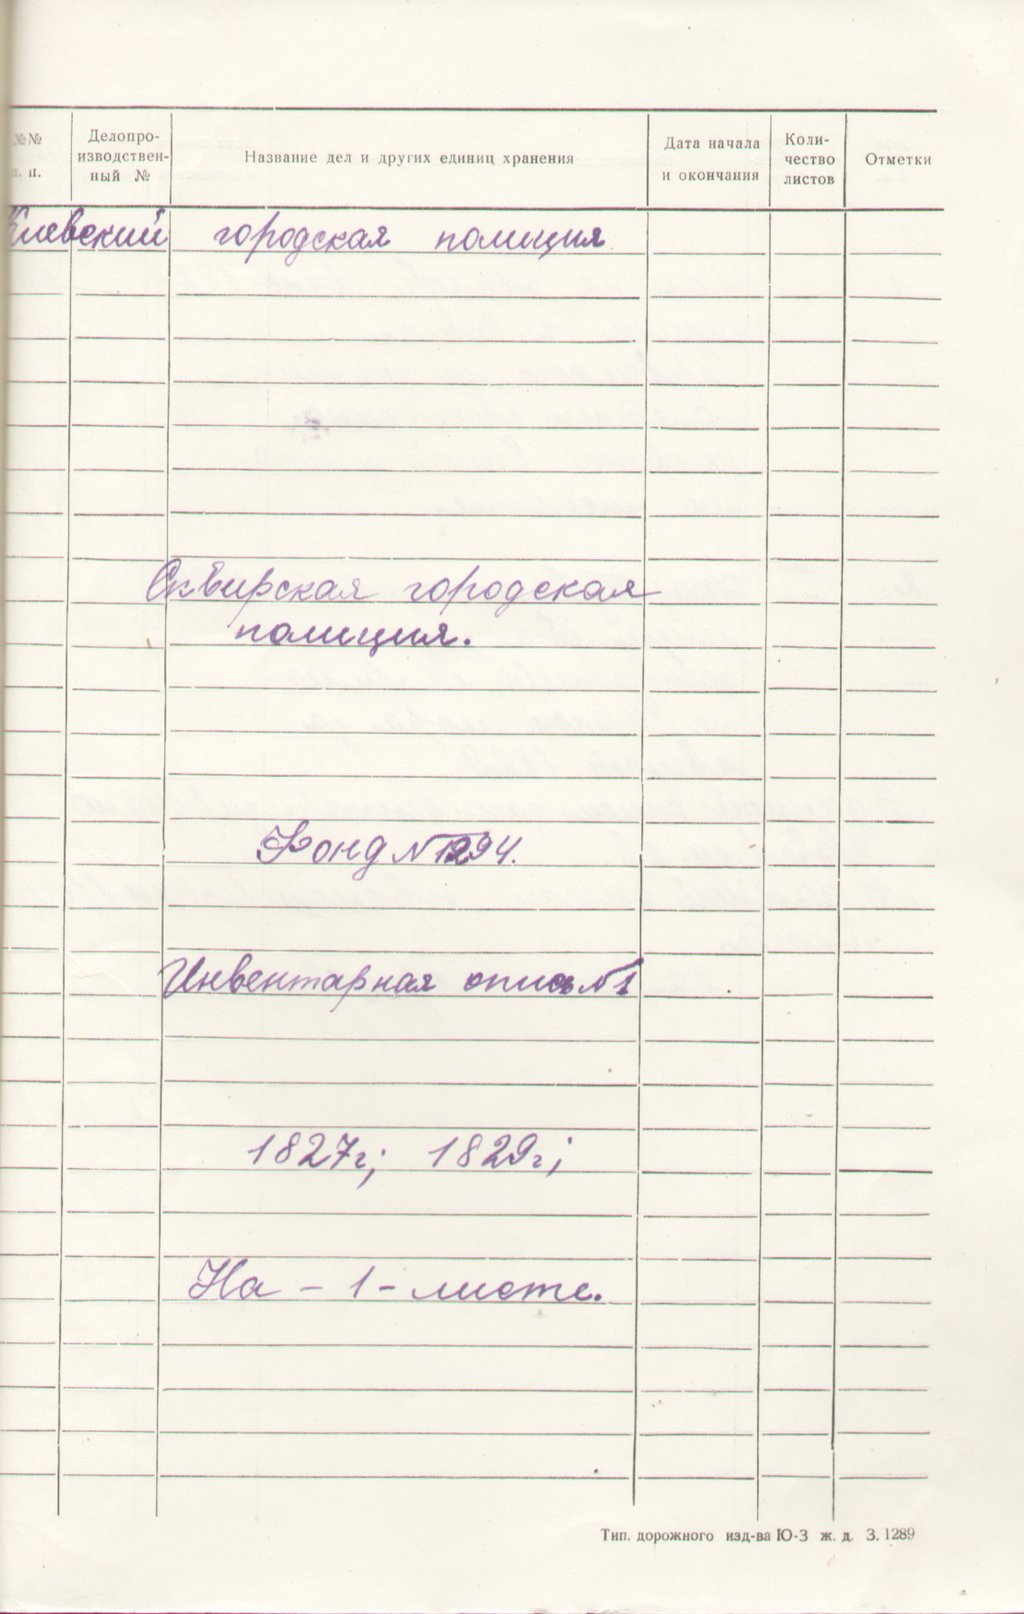 №№ п. п.
Делопро-
изводствен-
ный №
Название дел и других единиц хранения
Дата начала
и окончания
Коли-
чество
листов
Отметки
Киевский городская полиция
Сквирская городская
полиция.
Фонд № 1294.
Инвентарная опись № 1
1827г; 1829г;
На - 1 - листе.
Тип. дорожного изд-ва Ю-З ж. д. З. 1289